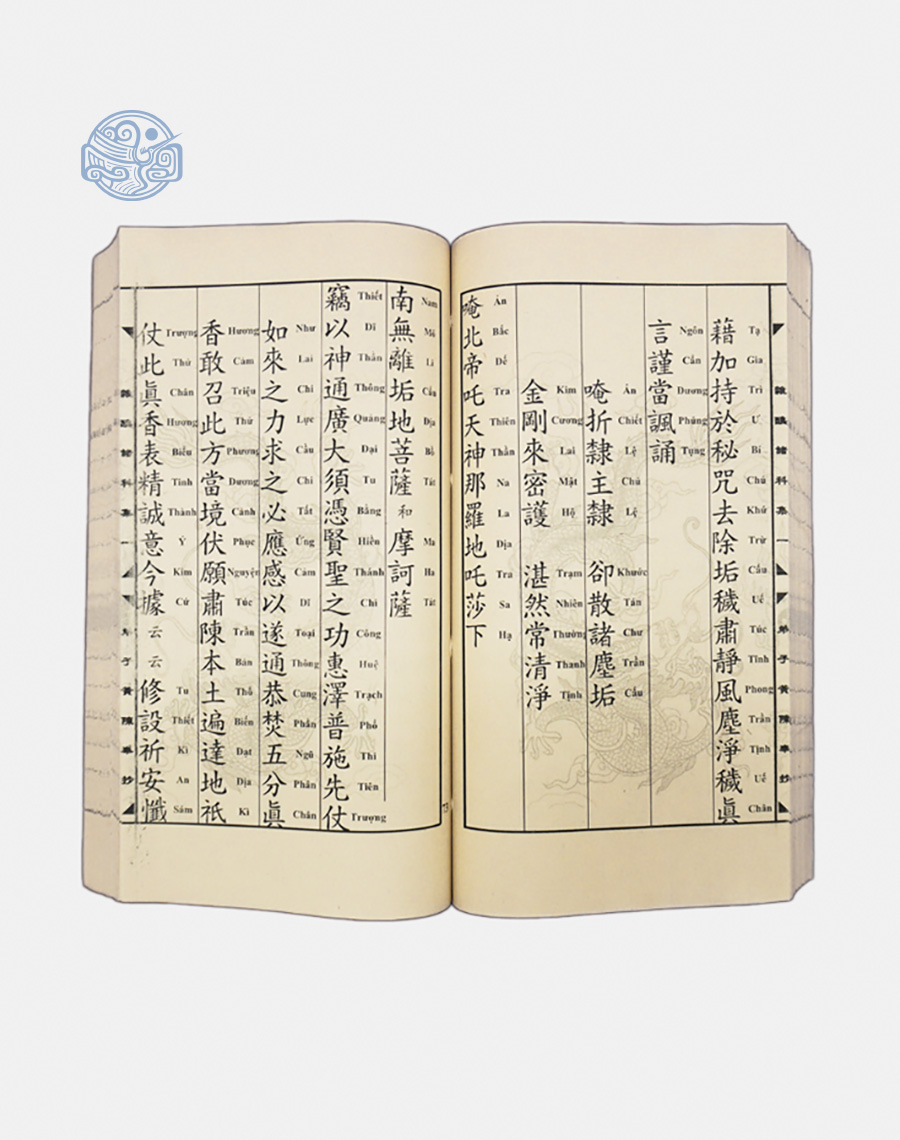 藉加持於秘咒去除垢穢肅靜風塵淨穢眞
Tạ Gia Trì Ư Bí Chú Khứ Trừ Cấu Uế Túc Tĩnh Phong Trần Tịnh Uế Chân
言謹當諷誦
Ngôn Cẩn Dương Phúng Tụng
唵折隸主隸 卻散諸塵垢
Án Chiết Lệ Chủ Lệ Khước Tán Chư Trần Cấu
金剛來密護 湛然常清淨
Kim Cương Lai Mật Hộ Trạm Nhiên Thường Thanh Tịnh
唵北帝吒天神那羅地吒莎下
Án Bắc Đế Tra Thiên Thần Na La Địa Tra Sa Hạ
南無離垢地菩薩和摩訶薩
Nam Mô Li Cấu Địa Bồ Tát Ma Ha Tát
竊以神通廣大須憑賢聖之功惠澤普施先仗
Thiết Dĩ Thần Thông Quảng Đại Tu Bằng Hiền Thánh Chi Công Huệ Trạch Phổ Thi Tiên Trượng
如來之力求之必應感以遂通恭焚五分眞
Như Lai Chi Lực Cầu Chi Tất Ứng Cảm Dĩ Toại Thông Cung Phần Ngũ Phân Chân
香敢召此方當境伏願肅陳本土遍達地祇
Hương Cảm Triệu Thử Phương Dương Cảnh Phục Nguyện Túc Trần Bản Thổ Biến Đạt Địa Kì
仗此眞香表精誠意今據云云修設祈安懺
Trượng Thử Chân Hương Biểu Tinh Thành Ý Kim Cứ Tu Thiết Kì An Sám
諸科集一
弟子黃陳奉抄